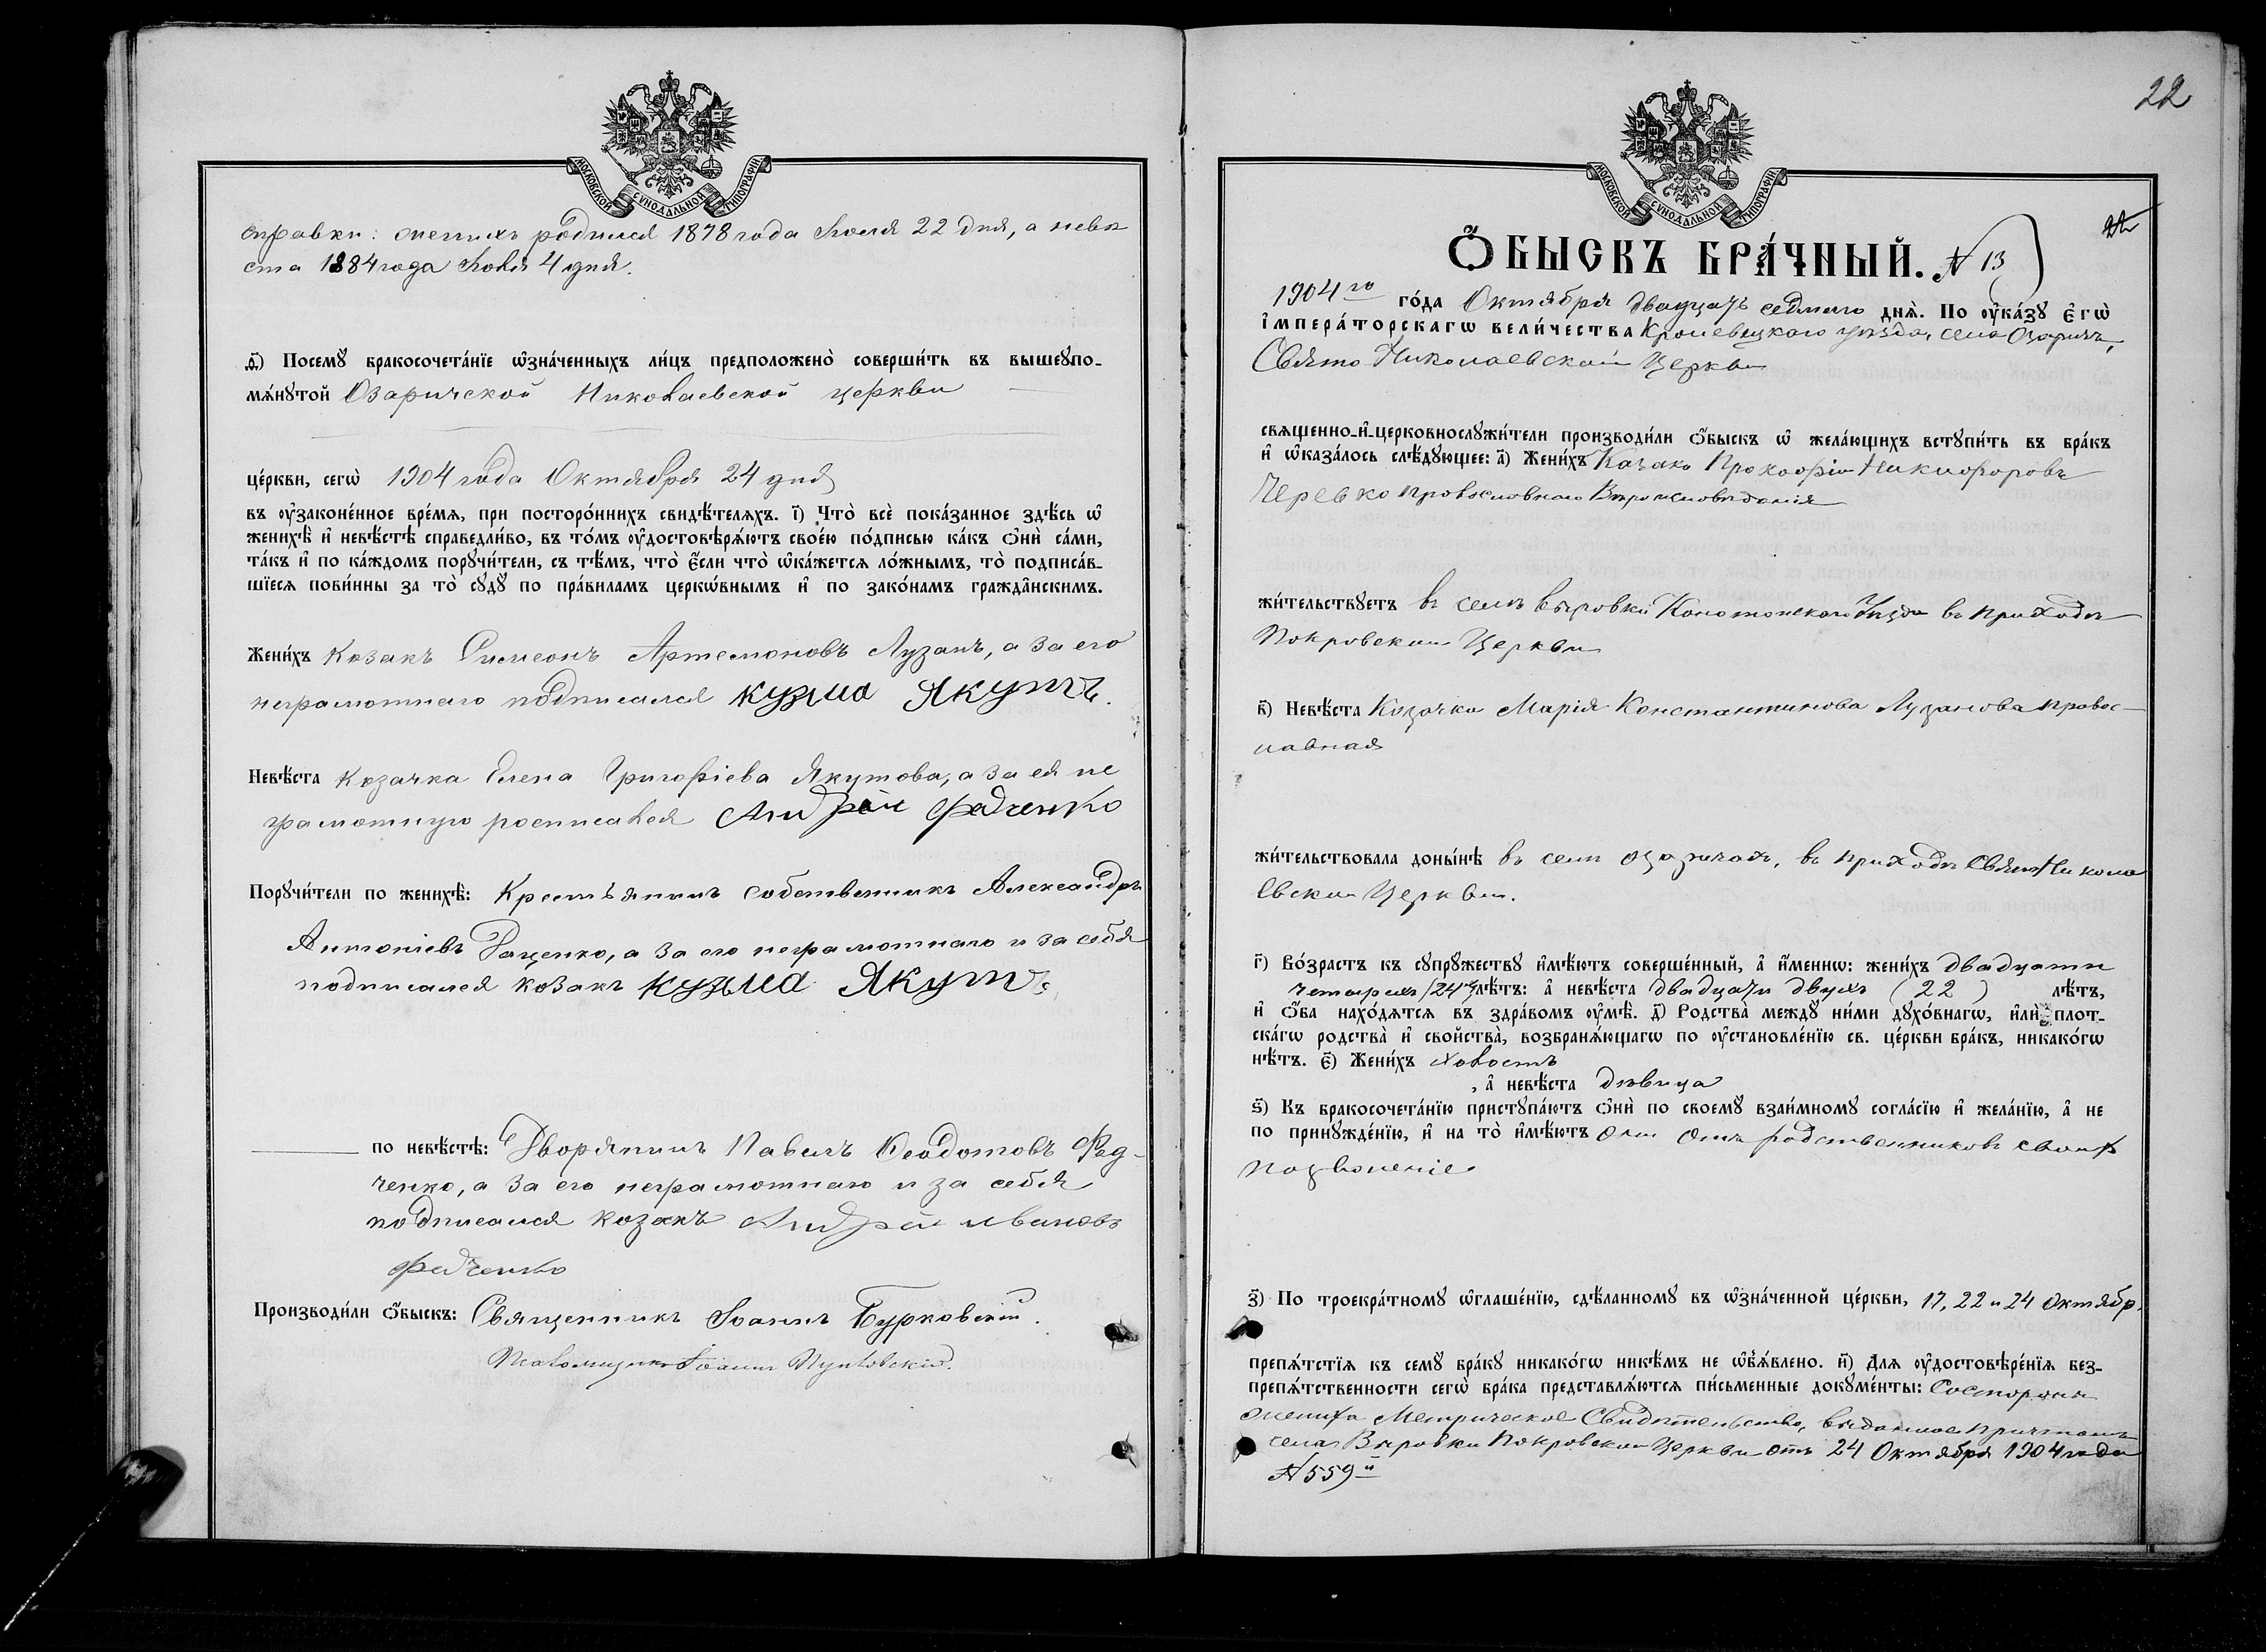 МОСКОВСКОЙ СѴНОДАЛЬНОЙ ТИПОГРАФІИ
справки: женихъ родился 1878 года Іюля 22 дня, а невѣ
ста 1884 года 4 дня.
д҃) Посемꙋ бракосочета́нїе ѡ҆зна́ченныхъ ли́цъ предположено̀ соверши́ть въ вышеꙋпо-
мѧ́нꙋтой Озаричской Николаевской церкви
це́ркви, сегѡ̀ 1904 года Октября 24 дня
въ оу҆законе́нное вре́мѧ, при посторо́ннихъ свидѣ́телѧхъ. і҃) Что̀ всѐ пока́занное здѣ́сь ѡ҆
женихѣ̀ и҆ невѣ́стѣ справедли́во, въ то́мъ оу҆достовѣрѧ́ютъ свое́ю по́дписью ка́къ ѻ҆нѝ са́ми,
та́къ и҆ по ка́ждомъ порꙋчи́тели, съ тѣ́мъ, что̀ є҆́сли что̀ ѡ҆ка́жетсѧ ло́жнымъ, то̀ подписа́в-
шїесѧ пови́нны за то̀ сꙋдꙋ̀ по пра́виламъ церкѡ́внымъ и҆ по зако́намъ гражда̑нскимъ.
Жени́хъ Козакъ Симеонъ Артемоновъ Лузанъ, а за его
неграмотнаго подписался Кузма Якутъ.
Невѣ́ста Козачка Елена Григоріева Якутова, а за ея не
грамотную росписался Андрей Федченко
Порꙋчи́тели по женихѣ̀: Крестьянинъ собственникъ Александръ
Антоніевъ Гаценко, а за его неграмотнаго и за себя
подписался козакъ Кузма Якутъ
по невѣ́стѣ: Дворянинъ Павелъ Ѳеодотовъ Фед-
ченко, а за его неграмотнаго и за себя
подписался козакъ Андрей Ивановъ
Федченко
Производи́ли ѻ҆́быскъ: Священникъ Іоаннъ Бурковскій.
Псаломщикъ Іоаннъ
22
МОСКОВСКОЙ СѴНОДАЛЬНОЙ ТИПОГРАФІИ
22
Ѻ҆́БЫСКЪ БРА́ЧНЫЙ. N 13
1904 го го́да Октября двадцать седьмаго днѧ̀. По оу҆ка́зꙋ є҆гѡ̀
і҆мпера́торскагѡ вели́чества Кролевецкаго уѣзда, села Озаричъ,
Свято Николаевской Церкви
свѧщенно-и҆-церковнослꙋжи́тели производи́ли ѻ҆́быскъ ѡ҆ жела́ющихъ встꙋпи́ть въ бра́къ
и҆ ѡ҆каза́лось слѣ́дꙋющее: а҃) Жени́хъ Козакъ Прокофій Никифоровъ
Черевко православнаго Вѣроисповѣданія
жи́тельствꙋетъ въ селѣ Вировки Конотопскаго Уѣзда въ приходѣ
Покровской Церкви
в҃) Невѣ́ста Козачка Марія Константинова Лузанова правос-
лавная
жи́тельствовала доны́нѣ въ селѣ Озаричахъ, въ приходѣ Свято Никола
евской Церкви.
г҃) Во́зрастъ къ сꙋпрꙋ́жествꙋ и҆мѣ́ютъ соверше́нный, а҆ и҆́меннѡ: жени́хъ двадцати
четырехъ (24) лѣ́тъ: а҆ невѣ́ста двадцати двухъ (22) лѣ́тъ,
и҆ ѻ҆́ба нахо́дѧтсѧ въ здра́вомъ оу҆мѣ̀. д҃) Родства̀ междꙋ̀ ни́ми дꙋхо́внагѡ, и҆лѝ плот-
ска́гѡ родства̀ и҆ сво́йства, возбранѧ́ющагѡ по оу҆становле́нїю св. це́ркви бра́къ, никако́гѡ
нѣ́тъ. є҃) Жени́хъ холостъ
, а҆ невѣ́ста дѣвица
ѕ҃) Къ бракосочета́нїю пристꙋпа́ютъ ѻ҆нѝ по своемꙋ̀ взаи́мномꙋ согла́сїю и҆ жела́нїю, а҆ не
по принꙋжде́нїю, и҆ на то̀ и҆мѣ́ютъ они отъ родственниковъ своихъ
позволеніе
з҃) По троекра́тномꙋ ѡ҆глаше́нїю, сдѣ́ланномꙋ въ ѡ҆зна́ченной це́ркви, 17, 22 и 24 Октябр.
препѧ́тстїѧ къ семꙋ̀ бра́кꙋ никако́гѡ никѣ́мъ не ѡ҆б̾ѧ́влено. и҃) Длѧ оу҆достовѣре́нїѧ без-
препѧ́тственности сегѡ̀ бра́ка представлѧ́ютсѧ пи́сьменные докꙋме́нты: Состороны
жениха Метрическое Свидѣтельство, выданное причтомъ
села Вировки Покровской Церкви отъ 24 Октября 1904 года
N 559 й